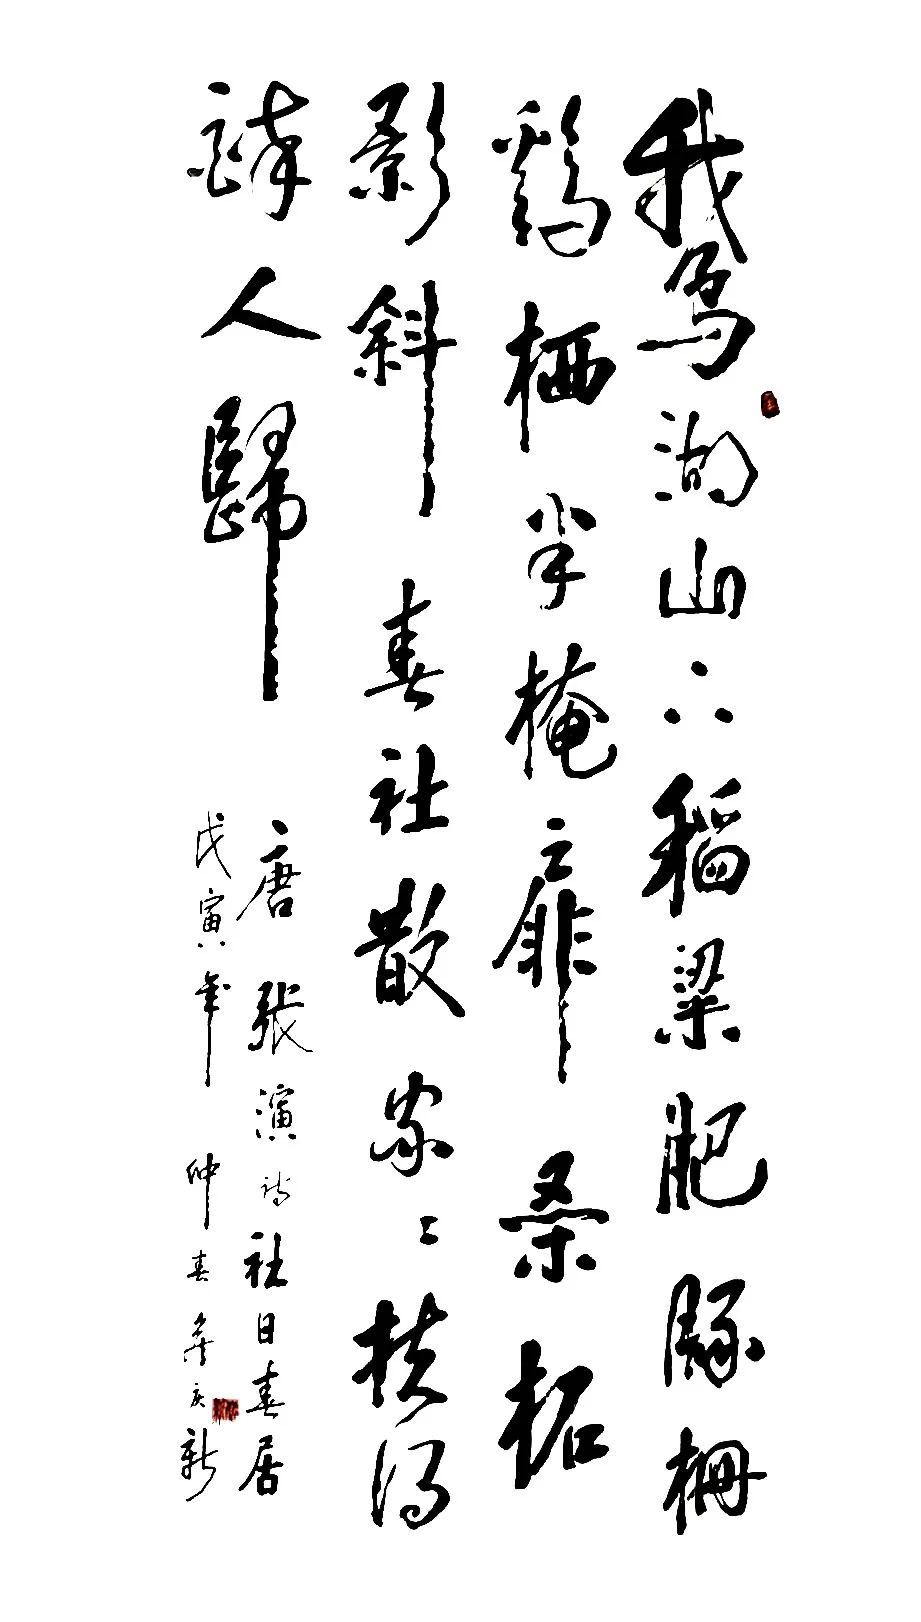 鵞湖山下稻粱肥豚柵
鷄栖半掩扉桑柘
影斜春社散家々扶得
醉人歸
唐張演詩社日春居
戊寅年仲春庆新